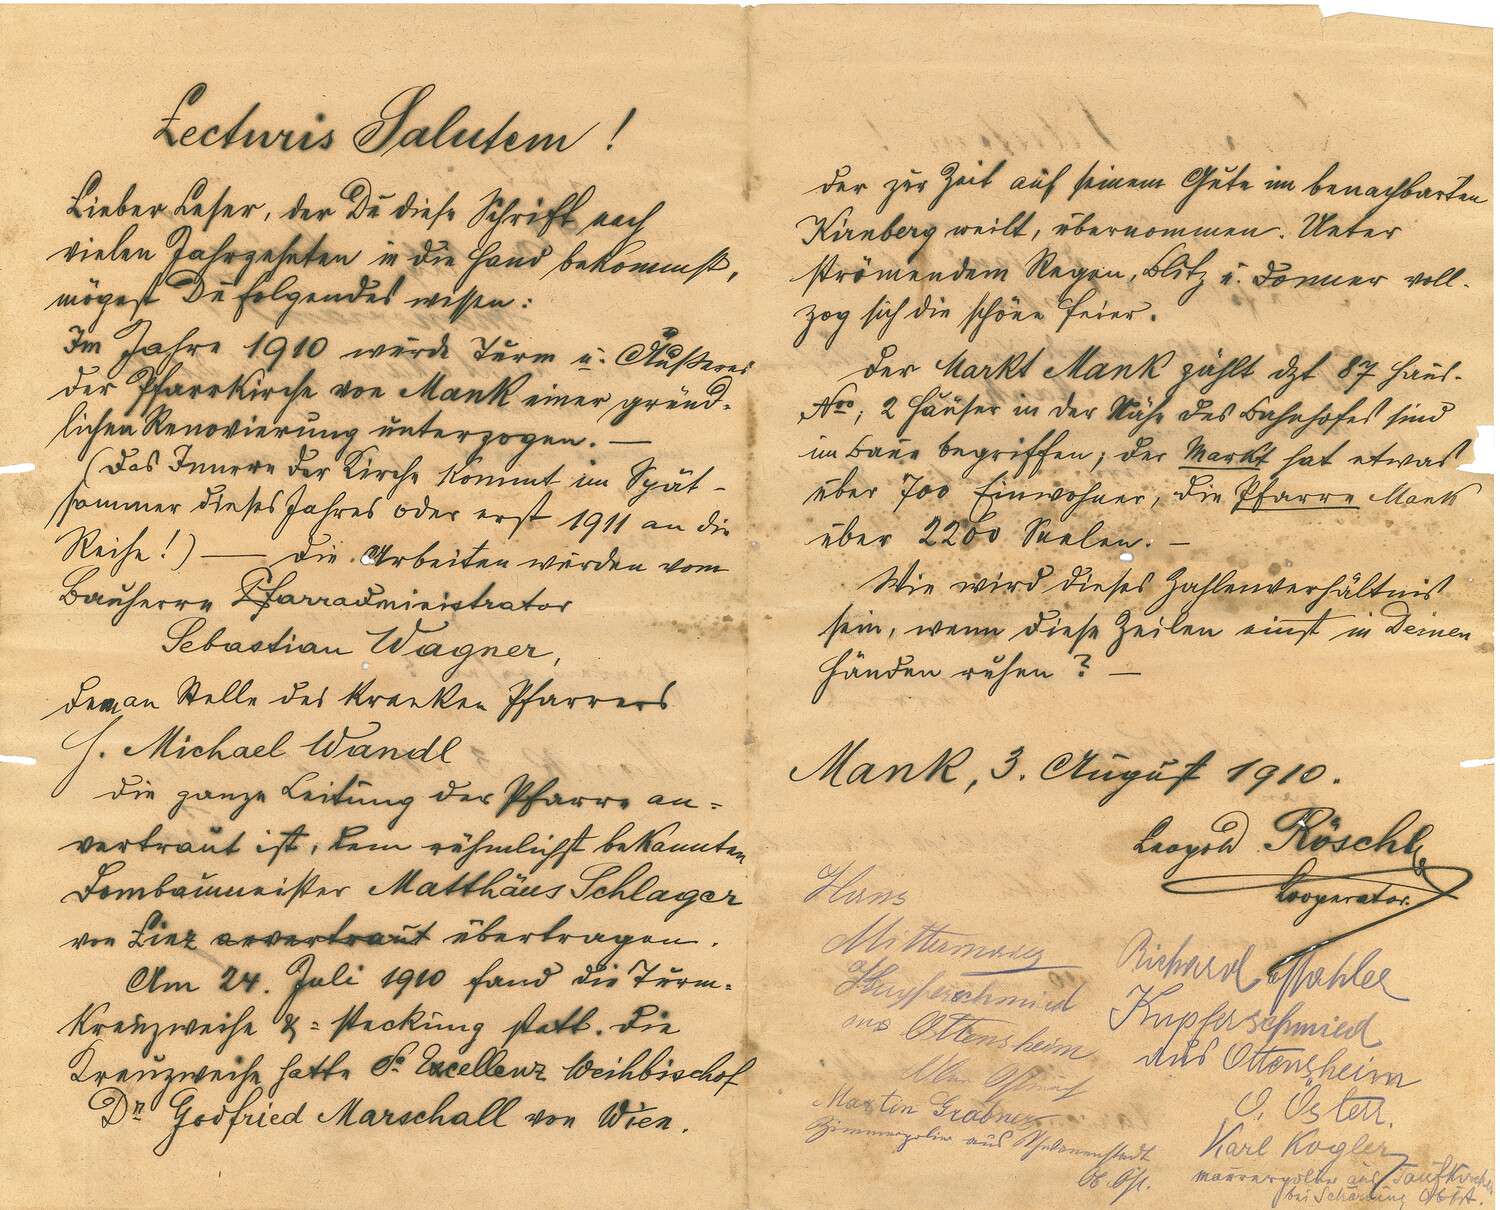 Lecturis Salutem!
Lieber Leser, der Du diese Schrift nach
vielen Jahrzehnten in die Hand bekommst,
mögest Du folgendes wissen:
Im Jahre 1910 wurde Turm u. Äußeres
der Pfarrkirche von Mank einer gründ=
lichen Renovierung unterzogen. —
(Das Innere der Kirche kommt im Spät-
sommer dieses Jahres oder erst 1911 an die
Reihe!) — Die Arbeiten wurden vom
Bauherrn Pfarradministrator
Sebastian Wagner,
dem an Stelle des kranken Pfarrers
H. Michael Wandl
die ganze Leitung der Pfarre an=
vertraut ist, dem rühmlichst bekannten
Dombaumeister Matthäus Schlager
von Linz anvertraut übertragen.
Am 24. Juli 1910 fand die Turm=
kreuzweihe &=steckung statt. Die
Kreuzweihe hatte Se Excellenz Weihbischof
Dr. Godfried Marschall von Wien.
der zur Zeit auf seinem Gute im benachbarten
Kirnberg weilt, übernommen. Unter
strömendem Regen, Blitz u. Donner voll-
zog sich die schöne Feier.
Der Markt Mank zählt dzt 87 Haus-
Nro; 2 Häuser in der Nähe des Bahnhofes sind
im Baue begriffen; der Markt hat etwas
über 700 Einwohner, die Pfarre Mank
über 2200 Seelen. —
Wie wird dieses Zahlenverhältnis
sein, wenn diese Zeilen einst in Deinen
Händen ruhen? —
Mank, 3. August 1910.
Leopold Röschl
Cooperator.
Hans
Mittermayr
Kupferschmied
aus Ottensheim
Martin Grabner
Zimmerpolier aus
Ob. Öst.
Richard Mahler
Kupferschmied
aus Ottensheim
O. Österr.
Karl Kogler
Maurerpolier aus Taufkirchen
bei Schärding Ob. Öst.